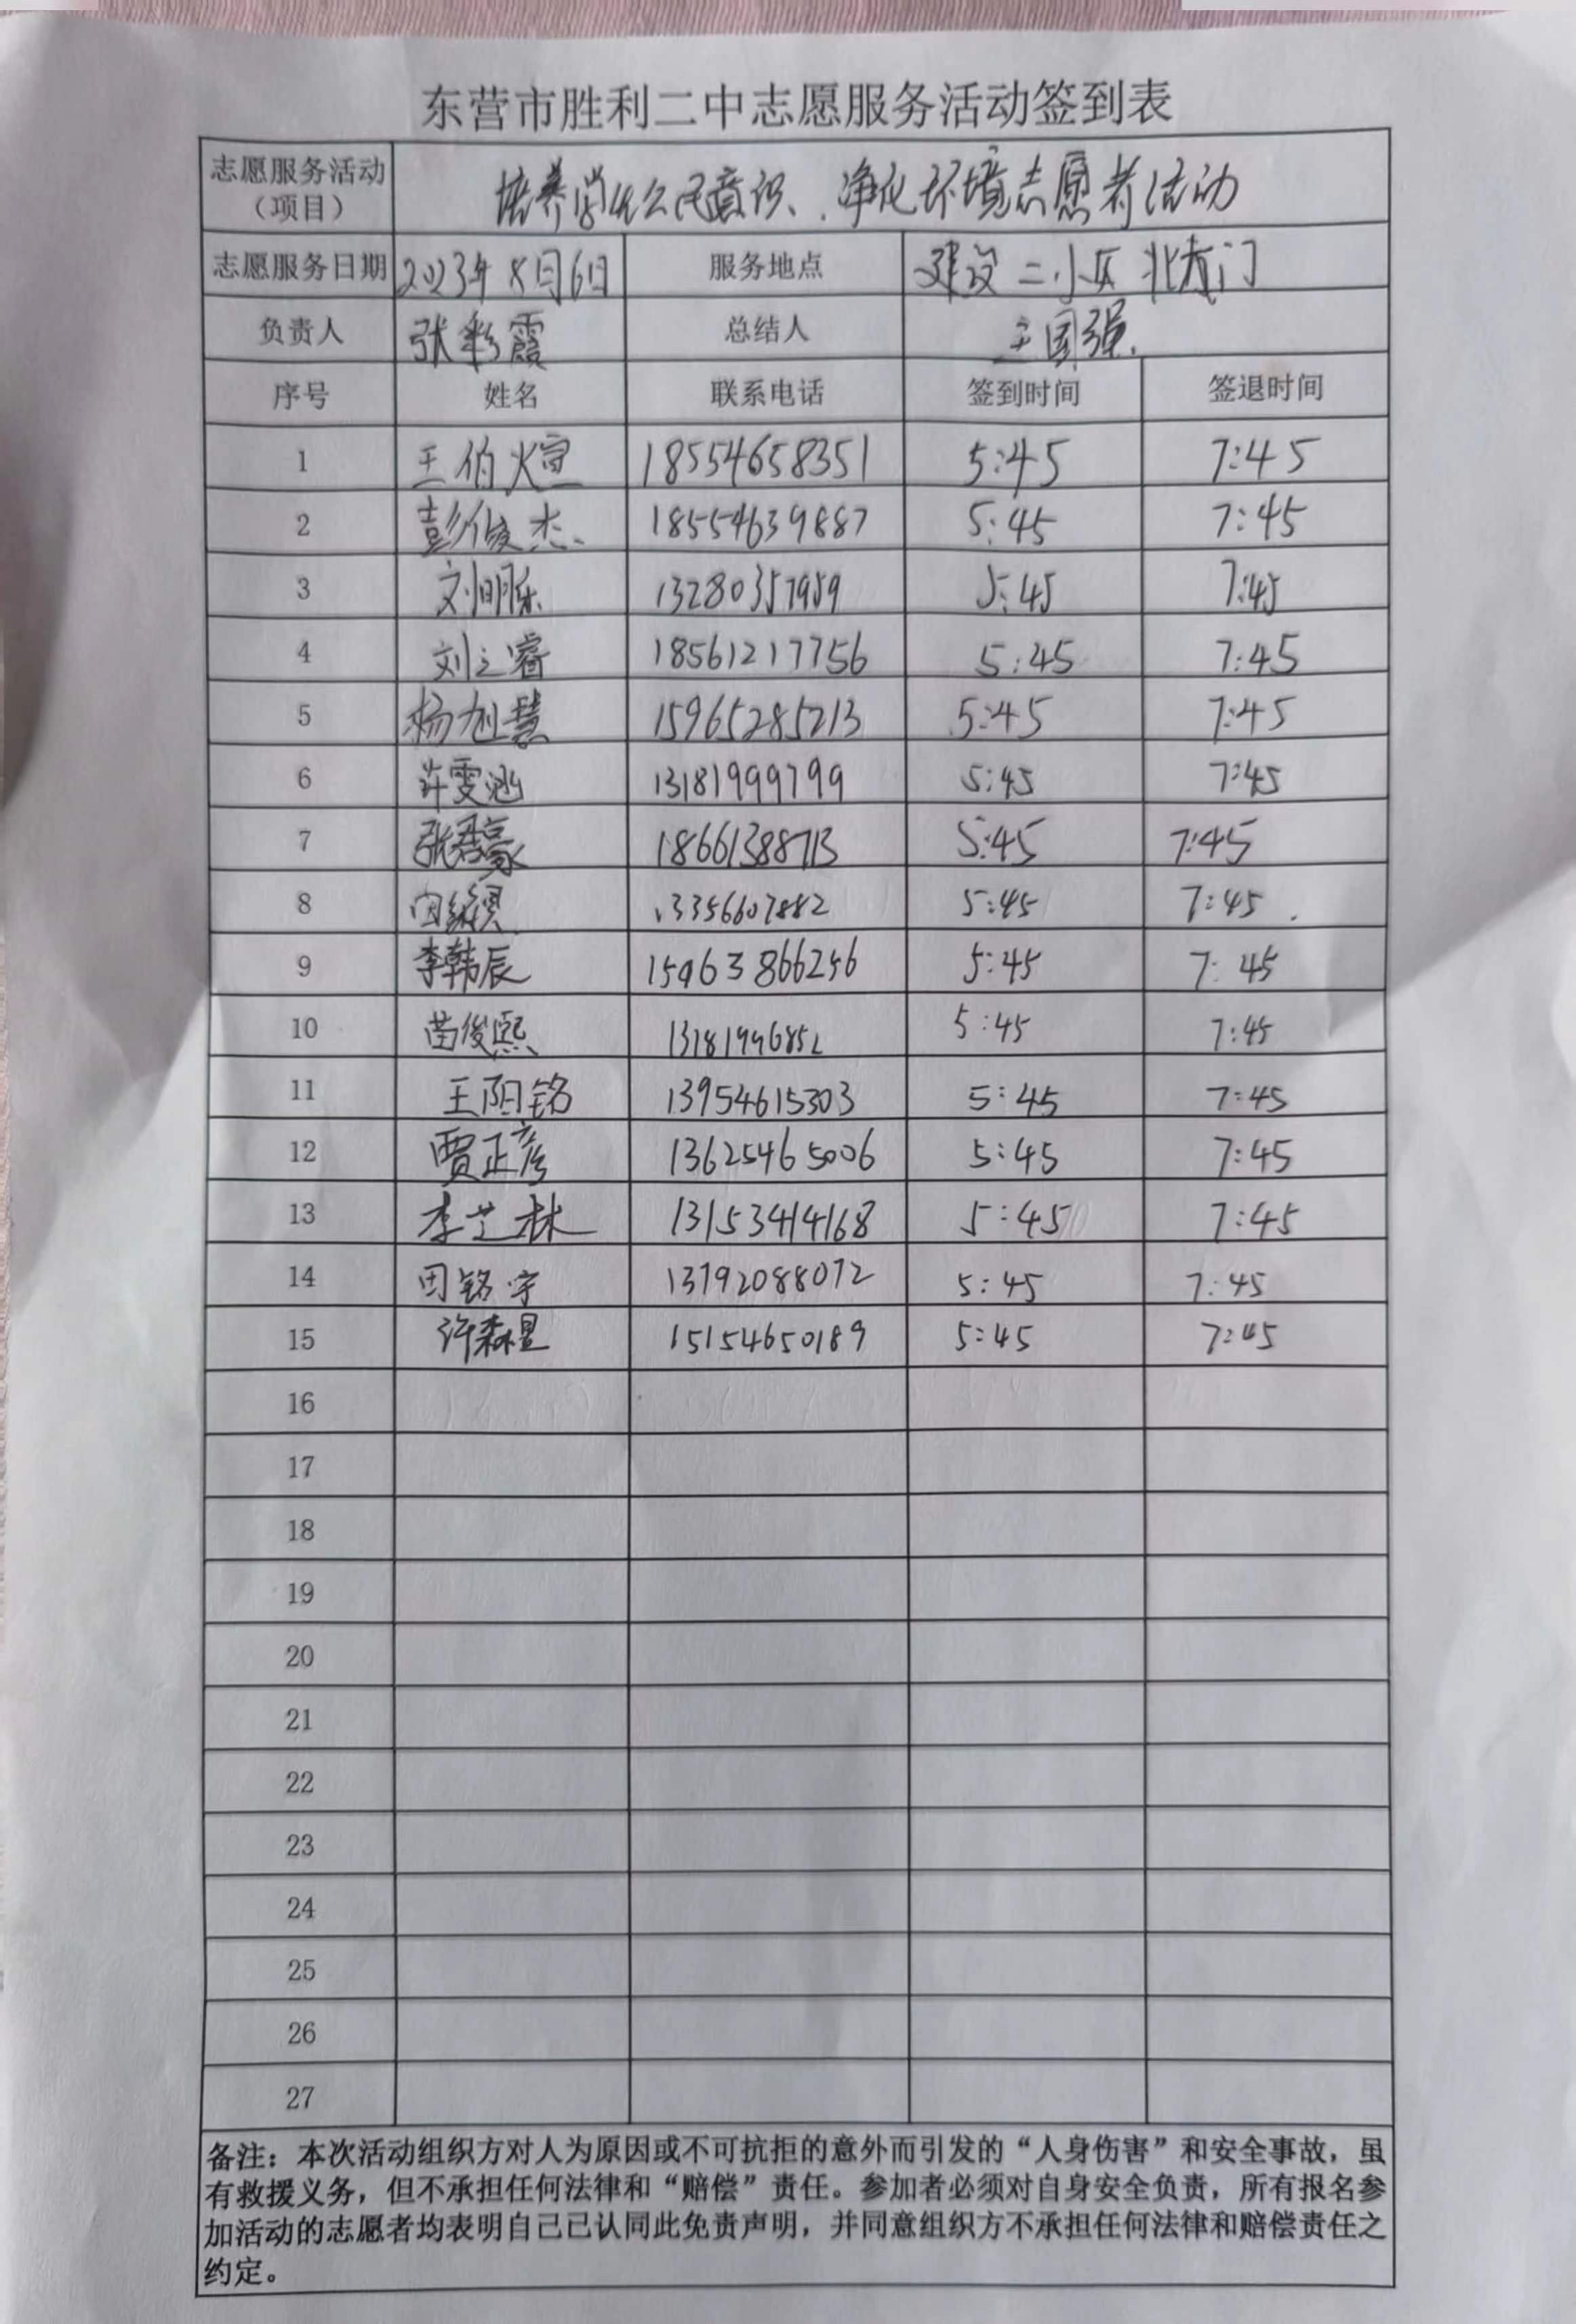 东营市胜利二中志愿服务活动签到表
志愿服务活动（项目） 培养学生公民意识、净化环境志愿者活动
志愿服务日期 2023年8月6日 服务地点 建设二小区北大门
负责人 张彩霞 总结人 王国强
序号 姓名 联系电话 签到时间 签退时间
1 王伯煊 18554658351 5:45 7:45
2 彭俊杰 18554639887 5:45 7:45
3 刘明乐 13280357959 5:45 7:45
4 刘之睿 18561217756 5:45 7:45
5 杨旭慧 15965285213 5:45 7:45
6 许雯涵 13181999799 5:45 7:45
7 张君豪 18661388713 5:45 7:45
8 13356607882 5:45 7:45
9 李韩辰 15963866256 5:45 7:45
10 苗俊熙 13181996852 5:45 7:45
11 王阳铭 13954615303 5:45 7:45
12 贾正彦 13625465006 5:45 7:45
13 李芝林 13153414168 5:45 7:45
14 田铭宇 13792088072 5:45 7:45
15 许森昱 15154650189 5:45 7:45
16
17
18
19
20
21
22
23
24
25
26
27
备注：本次活动组织方对人为原因或不可抗拒的意外而引发的“人身伤害”和安全事故，虽
有救援义务，但不承担任何法律和“赔偿”责任。参加者必须对自身安全负责，所有报名参
加活动的志愿者均表明自己已认同此免责声明，并同意组织方不承担任何法律和赔偿责任之
约定。